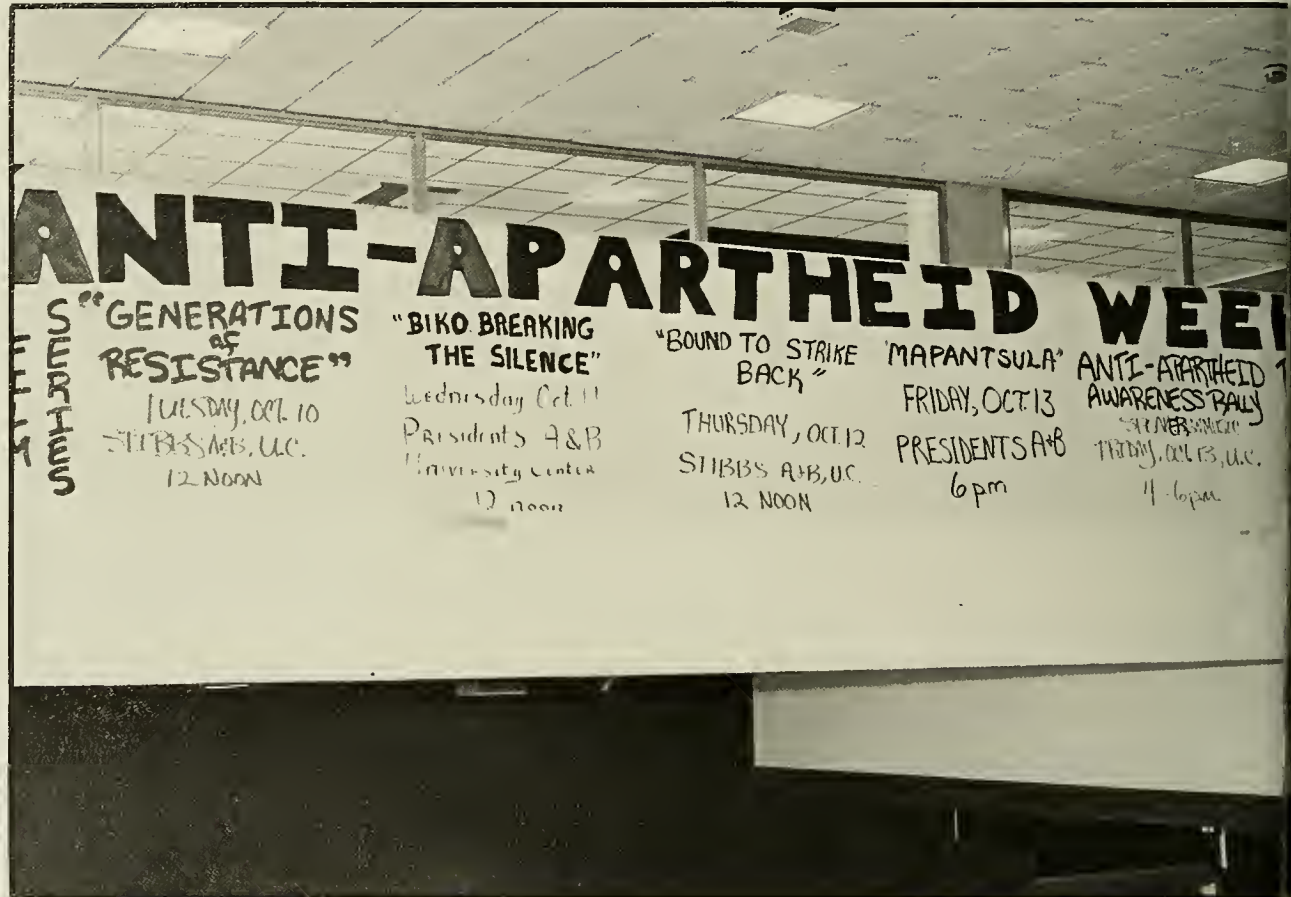 ANTI-APARTHEID WEE
FILM
SERIES
"GENERATIONS
of
RESISTANCE"
TUESDAY, OCT. 10
STIBBS A&B, U.C.
12 NOON
"BIKO BREAKING
THE SILENCE"
Wednesday Oct. 11
Presidents A&B
University Center
12 noon
"BOUND TO STRIKE
BACK"
THURSDAY, OCT. 12
STIBBS A+B, U.C.
12 NOON
"MAPANTSULA"
FRIDAY, OCT. 13
PRESIDENTS A+B
6pm
ANTI-APARTHEID
AWARENESS RALLY
FRIDAY, OCT. 13, U.C.
4-6pm